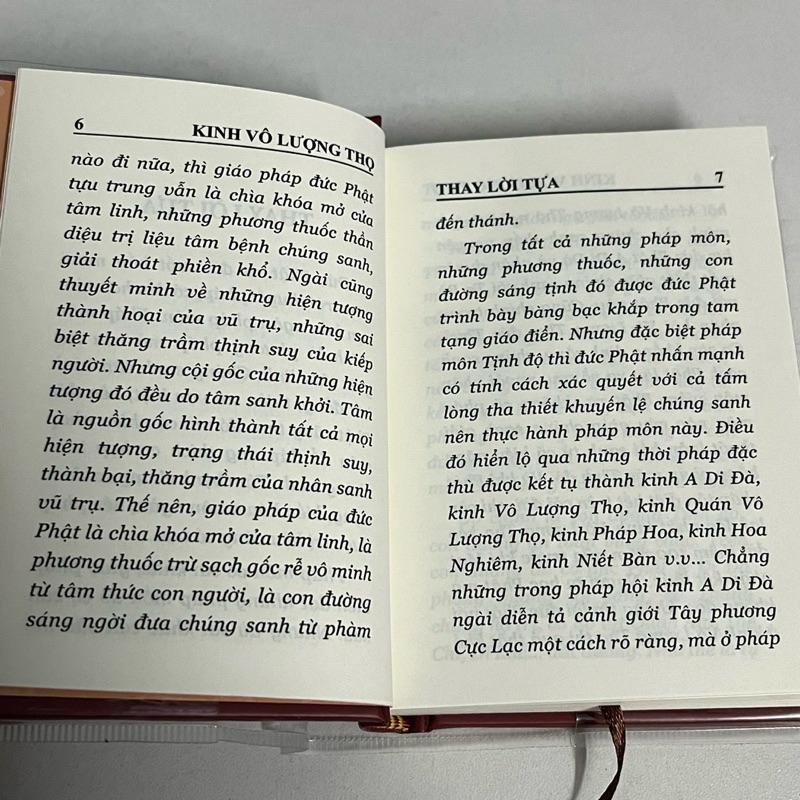 6
KINH VÔ LƯỢNG THỌ
nào đi nữa, thì giáo pháp đức Phật
tựu trung vẫn là chìa khóa mở cửa
tâm linh, những phương thuốc thần
diệu trị liệu tâm bệnh chúng sanh,
giải thoát phiền khổ. Ngài cũng
thuyết minh về những hiện tượng
thành hoại của vũ trụ, những sai
biệt thăng trầm thịnh suy của kiếp
người. Nhưng cội gốc của những hiện
tượng đó đều do tâm sanh khởi. Tâm
là nguồn gốc hình thành tất cả mọi
hiện tượng, trạng thái thịnh suy,
thành bại, thăng trầm của nhân sanh
vũ trụ. Thế nên, giáo pháp của đức
Phật là chìa khóa mở cửa tâm linh, là
phương thuốc trừ sạch gốc rễ vô minh
từ tâm thức con người, là con đường
sáng ngời đưa chúng sanh từ phàm
THAY LỜI TỰA
7
đến thánh.
Trong tất cả những pháp môn,
những phương thuốc, những con
đường sáng tịnh đó được đức Phật
trình bày bàng bạc khắp trong tam
tạng giáo điển. Nhưng đặc biệt pháp
môn Tịnh độ thì đức Phật nhấn mạnh
có tính cách xác quyết với cả tấm
lòng tha thiết khuyến lệ chúng sanh
nên thực hành pháp môn này. Điều
đó hiển lộ qua những thời pháp đặc
thù được kết tụ thành kinh A Di Đà,
kinh Vô Lượng Thọ, kinh Quán Vô
Lượng Thọ, kinh Pháp Hoa, kinh Hoa
Nghiêm, kinh Niết Bàn v.v... Chẳng
những trong pháp hội kinh A Di Đà
ngài diễn tả cảnh giới Tây phương
Cực Lạc một cách rõ ràng, mà ở pháp